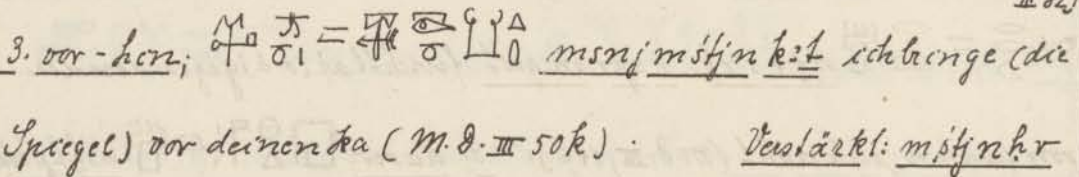 3. vor-hen; msnj mśtjn k:t ich bringe (die
Spiegel) vor deinen ka (M.D. III 50k). Verstärkt: mśtjn hr